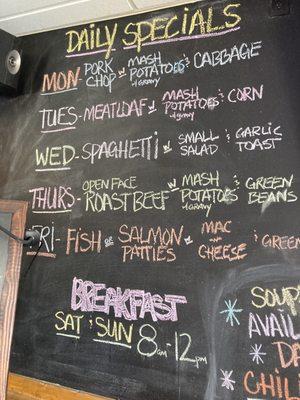 DAILY SPECIALS
MON - PORK CHOP W MASH POTATOES & GRAVY & CABBAGE
TUES - MEATLOAF W MASH POTATOES & GRAVY & CORN
WED - SPAGHETTI SMALL SALAD & GARLIC TOAST
THURS - OPEN FACE ROAST BEEF W MASH POTATOES & GRAVY & GREEN BEANS
FRI - FISH OR SALMON PATTIES W MAC N CHEESE & GREEN
BREAKFAST
SAT & SUN 8AM - 12PM
SOUP
AVAIL
CHILI